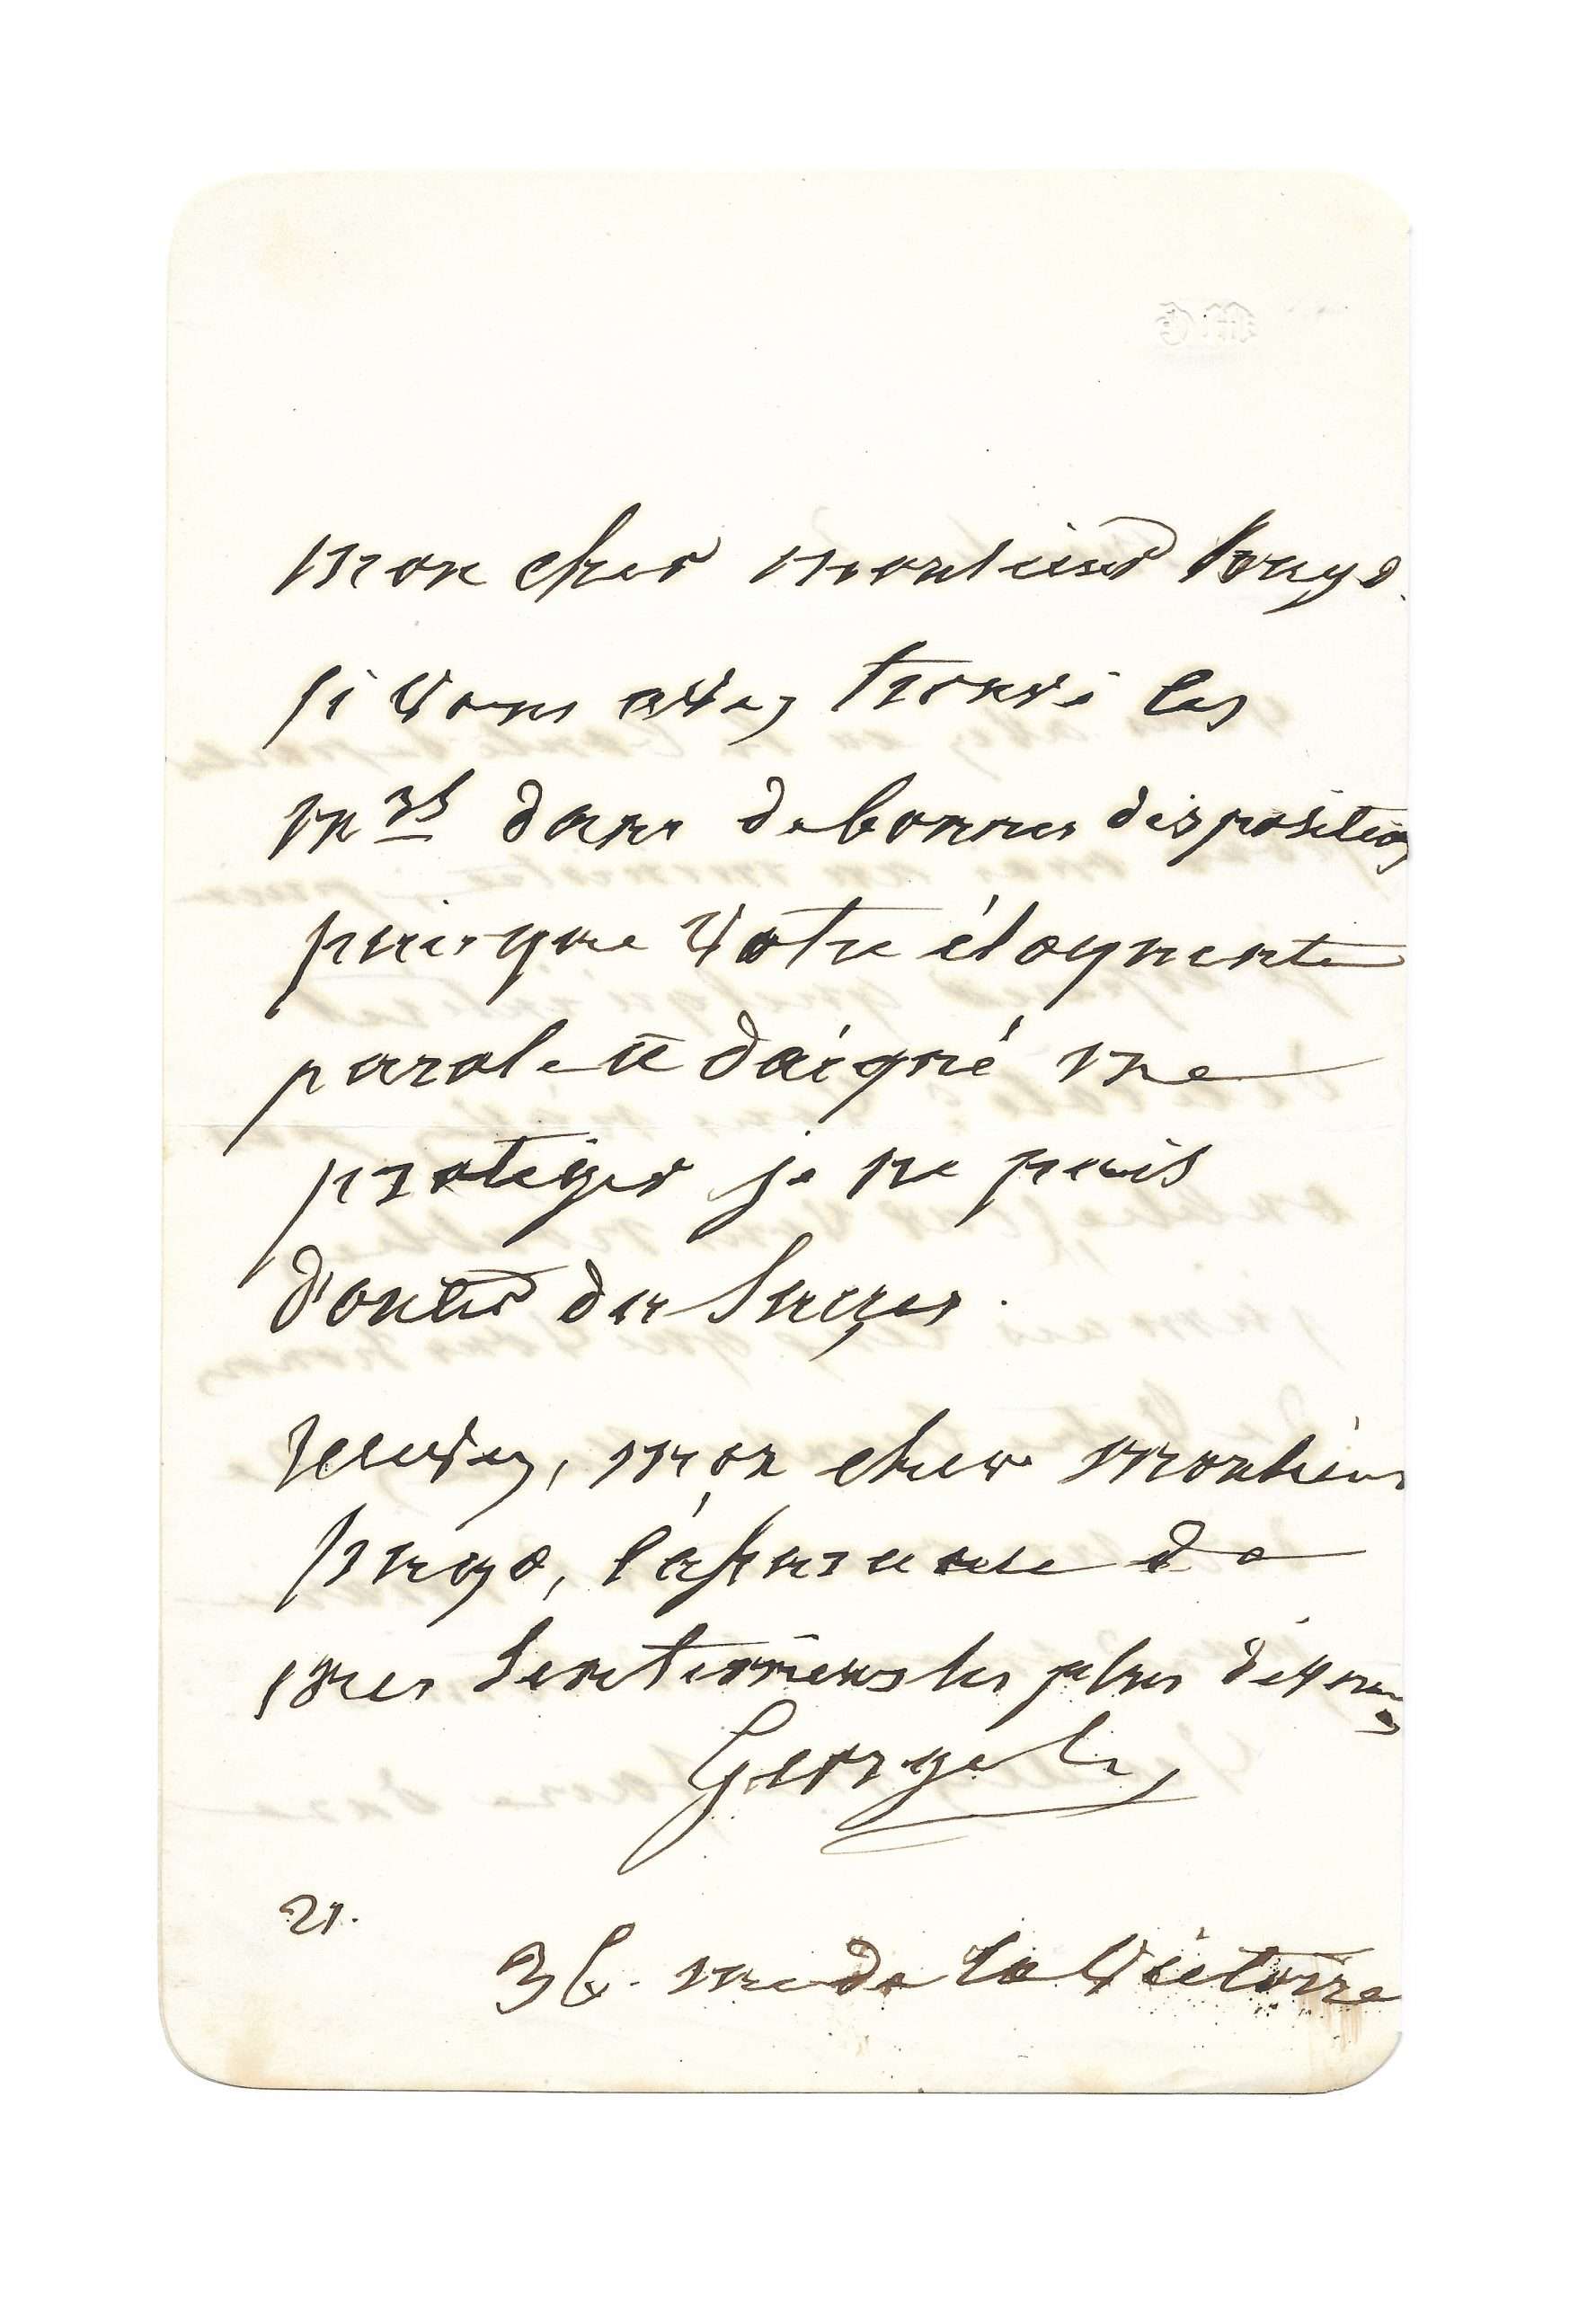 mon cher monsieur hugo.
si vous avez trouvé les
mrs dans de bonnes dispositions
puisque votre éloquente
parole a daigné me
protéger je ne puis
douter du succes.
recevez, mon cher monsieur
hugo, l'assurance de
mes sentiments les plus
George
21.
36. rue de la Victoire